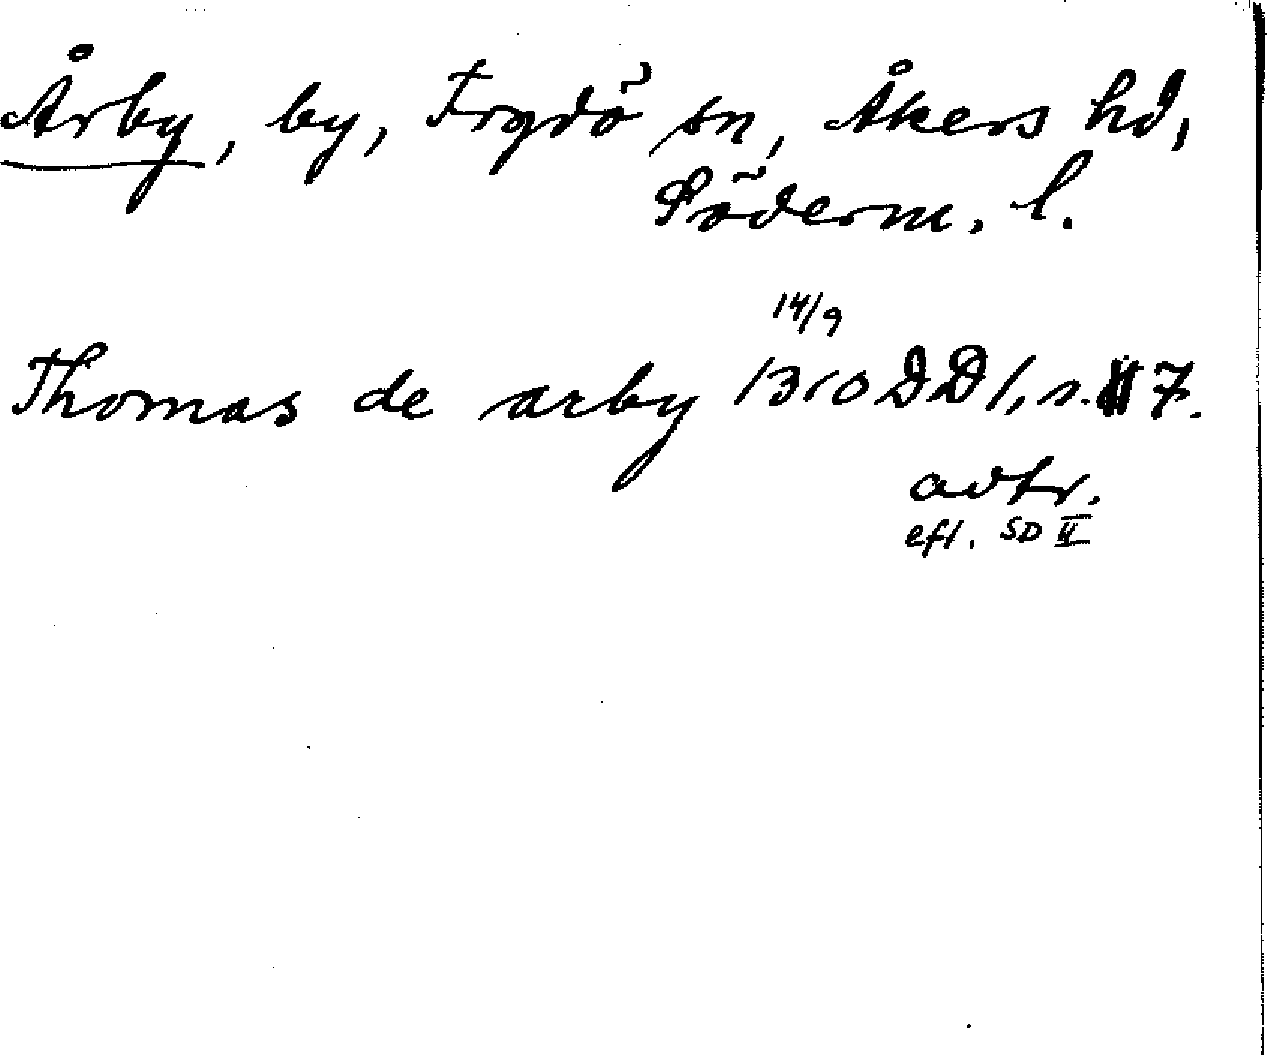 Årby, by, Frydö sn, Åkers hd,
Söderm. l.
14/9
Thomas de arby 1310 DD 1, s. 7.
avtr.
eft. SD II